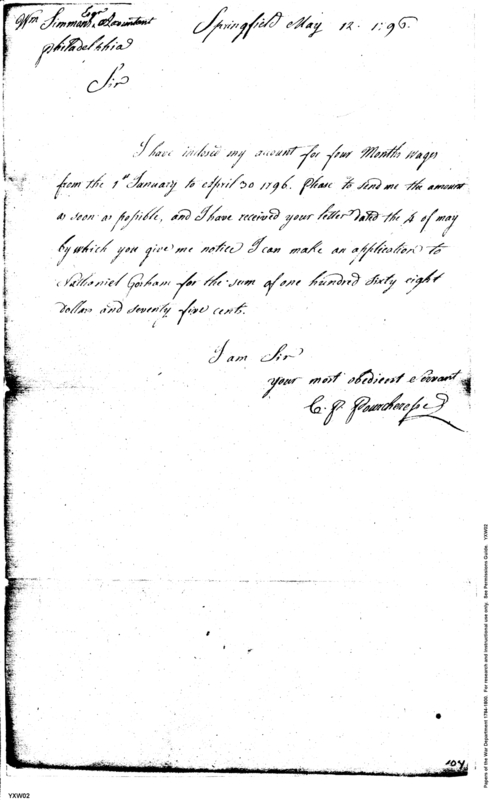 Wm Simmons Esqr Accountant
philadelphia
Springfield May 12. 1796.
Sir
I have inclosed my account for four Months wages
from the 1st January to April 30 1796. Please to send me the amount
as soon as possible, and I have received your letter dated the 4 of may
by which you give me notice I can make an application to
Nathaniel Gorham for the sum of one hundred sixty eight
Dollars and seventy five cents.
I am Sir
your most obedient Servant
C. P.
104
YXW02
Papers of the War Department 1784-1800. For research and instructional use only. See Permissions Guide. YXW02